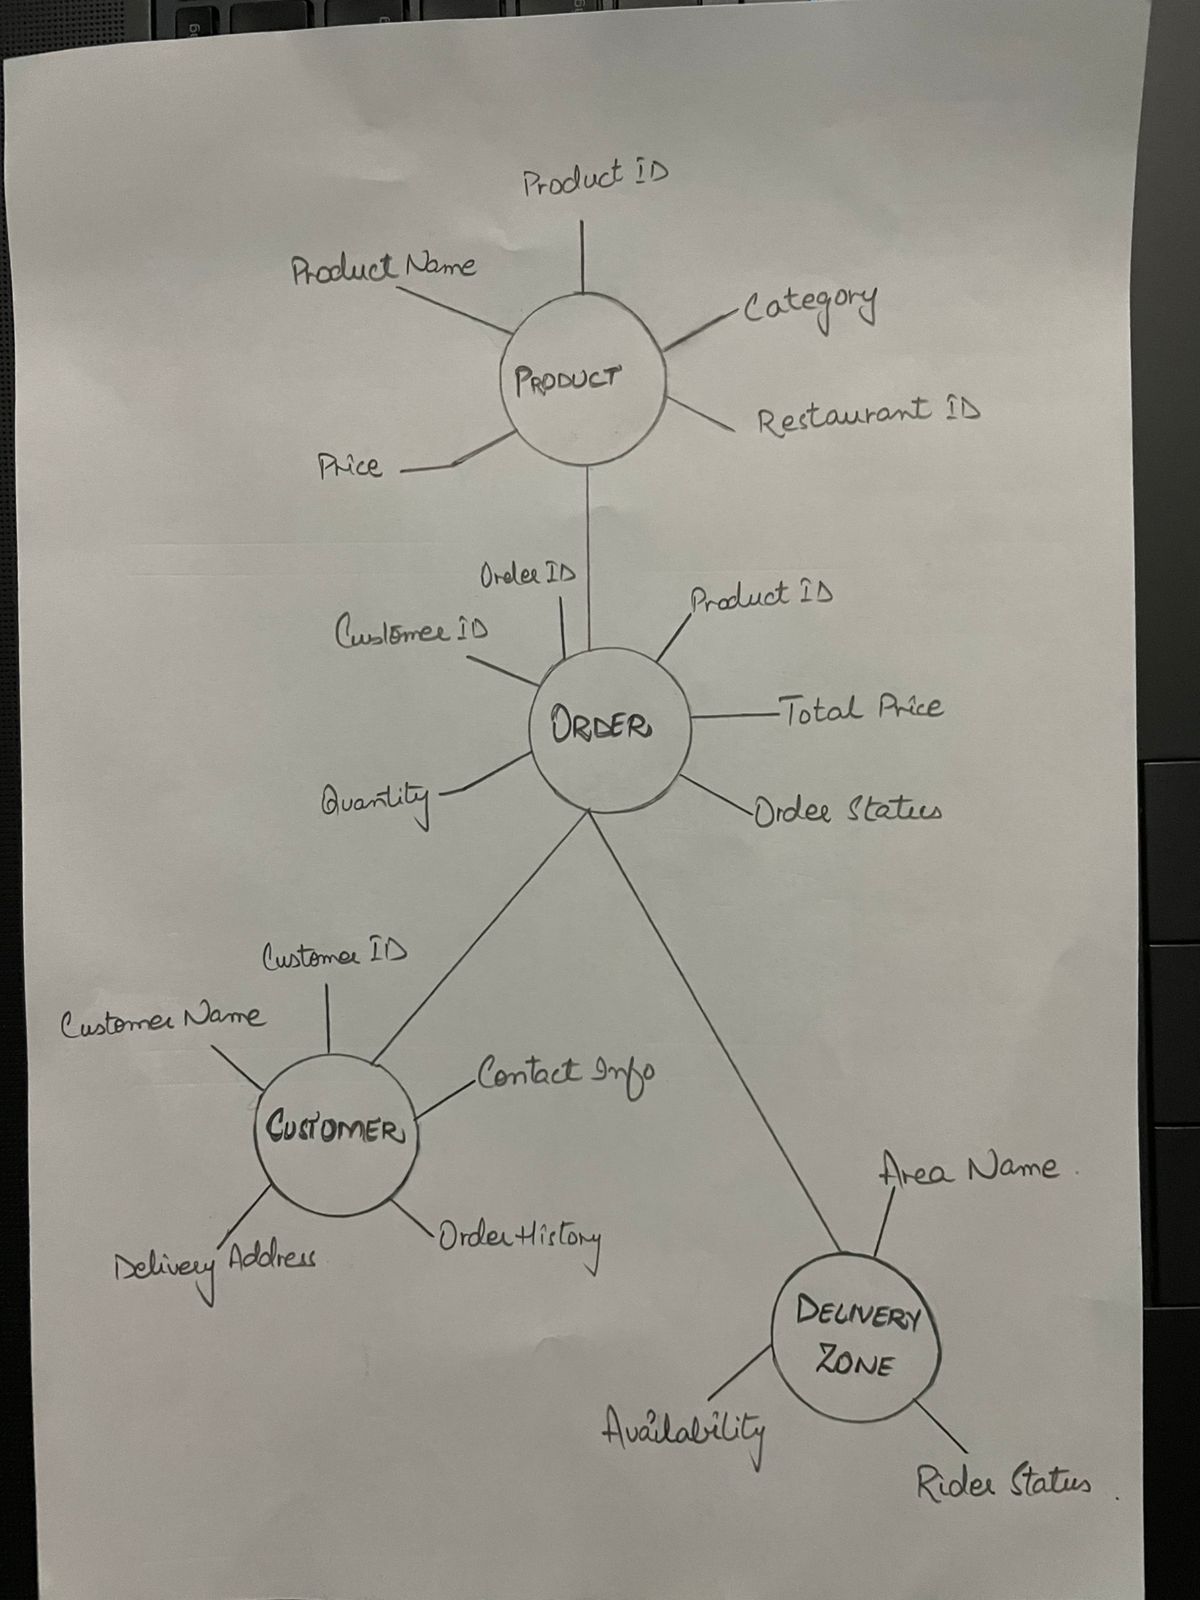 Product ID
Product Name
Category
PRODUCT
Restaurant ID
Price
Order ID
Product ID
Customer ID
Total Price
ORDER
Quantity
Order Status
Customer ID
Customer Name
Contact Info
CUSTOMER
Order History
Delivery Address
Area Name
DELIVERY
ZONE
Availability
Rider Status